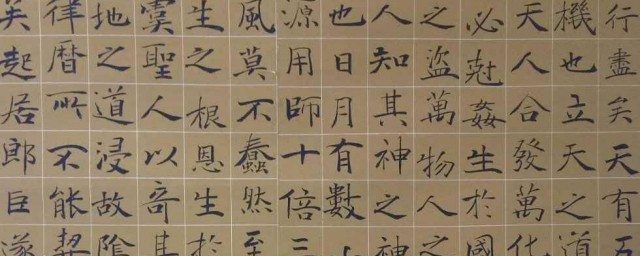 行盡矣天有五
機也立天之道
天人合發萬化
必尅姦生於國
之盜萬物人之
人知其神之神
也日月有數
源用師十倍三
風莫不蠢然至
生之根恩生於
虞聖人以奇其
地之道浸故陰
律曆所不能契
矣起居郎臣遂